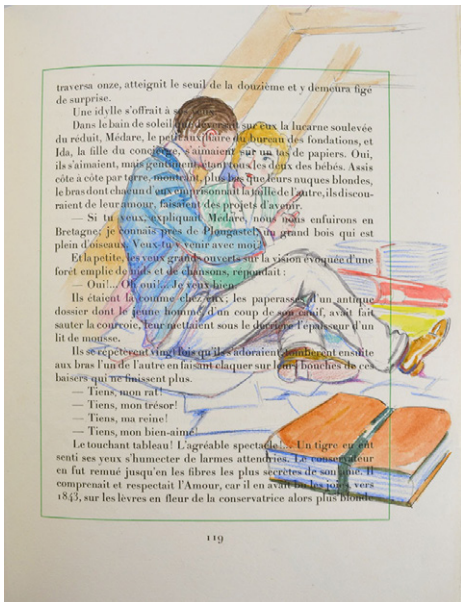 traversa onze, atteignit le seuil de la douzième et y demeura figé
de surprise.
Une idylle s'offrait à ses
Dans le bain de soleil que déversait sur eux la lucarne soulevée
du réduit, Médare, le petit auxiliaire du bureau des fondations, et
Ida, la fille du concierge, s'aimaient sur un tas de papiers. Oui,
ils s'aimaient, mais étant tous les deux des bébés. Assis
côte à côte par terre, montrant, plus bas que leurs nuques blondes,
le bras dont chacun d'eux emprisonnait la taille de l'autre, ils discou-
raient de leur amour, faisaient des projets d'avenir.
— Si tu veux, expliquait Médare, nous nous enfuirons en
Bretagne; je connais près de Plougastel un grand bois qui est
plein d'oiseaux. Veux-tu y venir avec moi
Et la petite, les yeux grands ouverts sur la vision évoquée d'une
forêt emplie de nids et de chansons, répondait :
— Oui!... oui!... Je veux bien!
Ils étaient là comme chez eux; les paperasses d'un antique
dossier dont le jeune homme, d'un coup de son canif, avait fait
sauter la courroie, leur mettaient sous le derrière l'épaisseur d'un
lit de mousse.
Ils se répétèrent vingt fois qu'ils s'adoraient, tombèrent ensuite
aux bras l'un de l'autre en faisant claquer sur leurs bouches de ces
baisers qui ne finissent plus.
— Tiens, mon rat!
— Tiens, mon trésor!
— Tiens, ma reine!
— Tiens, mon bien-aimé!
Le touchant tableau! L'agréable spectacle!... Un tigre en eût
senti ses yeux s'humecter de larmes attendries. Le conservateur
en fut remué jusqu'en les fibres les plus secrètes de son âme. Il
comprenait et respectait l'Amour, car il en avait bu les joies, vers
1843, sur les lèvres en fleur de la conservatrice alors plus blonde
119